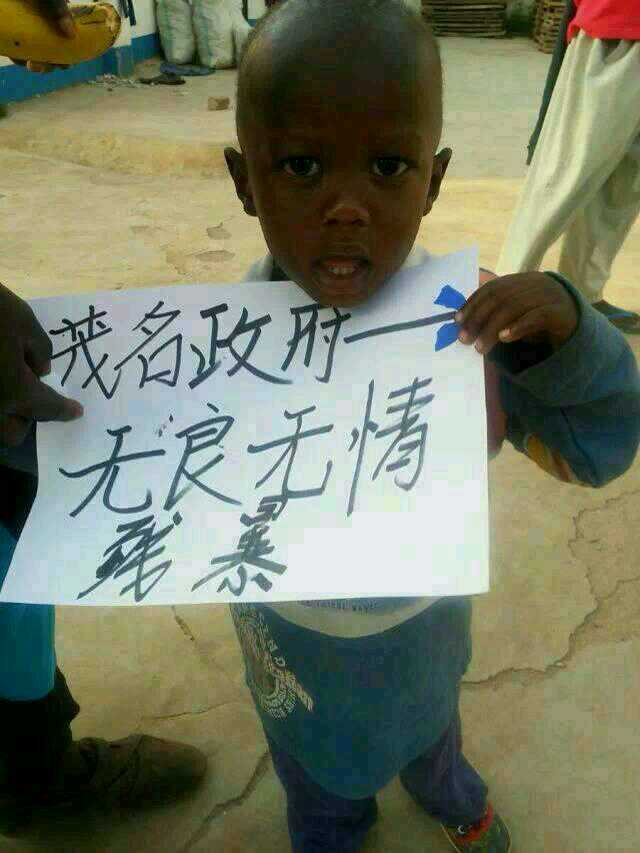 茂名政府一
无良无情
残暴